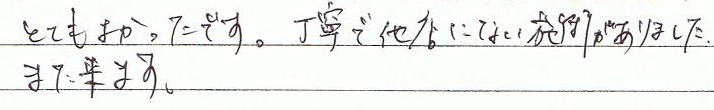 とてもよかったです。丁寧で他店にない施術がありました.
また来ます。